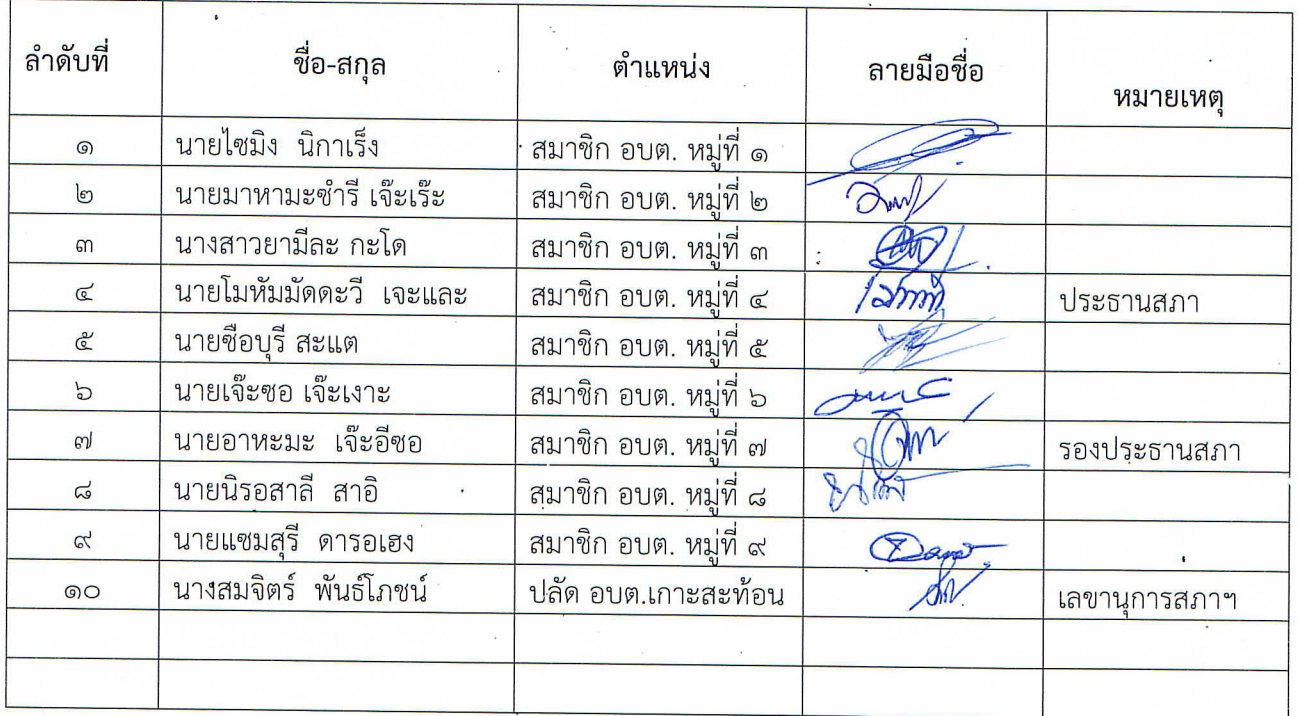 ลำดับที่ ชื่อ-สกุล ตำแหน่ง ลายมือชื่อ หมายเหตุ
๑ นายไซมิง นิกาเร็ง สมาชิก อบต. หมู่ที่ ๑
๒ นายมาหามะซำรี เจ๊ะเร๊ะ สมาชิก อบต. หมู่ที่ ๒
๓ นางสาวยามีละ กะโด สมาชิก อบต. หมู่ที่ ๓
๔ นายโมหัมมัดดะวี เจะและ สมาชิก อบต. หมู่ที่ ๔ ประธานสภา
๕ นายซือบุรี สะแต สมาชิก อบต. หมู่ที่ ๕
๖ นายเจ๊ะซอ เจ๊ะเงาะ สมาชิก อบต. หมู่ที่ ๖
๗ นายอาหะมะ เจ๊ะอีซอ สมาชิก อบต. หมู่ที่ ๗ รองประธานสภา
๘ นายนิรอสาลี สาอิ สมาชิก อบต. หมู่ที่ ๘
๙ นายแซมสุรี ดารอเฮง สมาชิก อบต. หมู่ที่ ๙
๑๐ นางสมจิตร์ พันธ์โภชน์ ปลัด อบต.เกาะสะท้อน เลขานุการสภาฯ